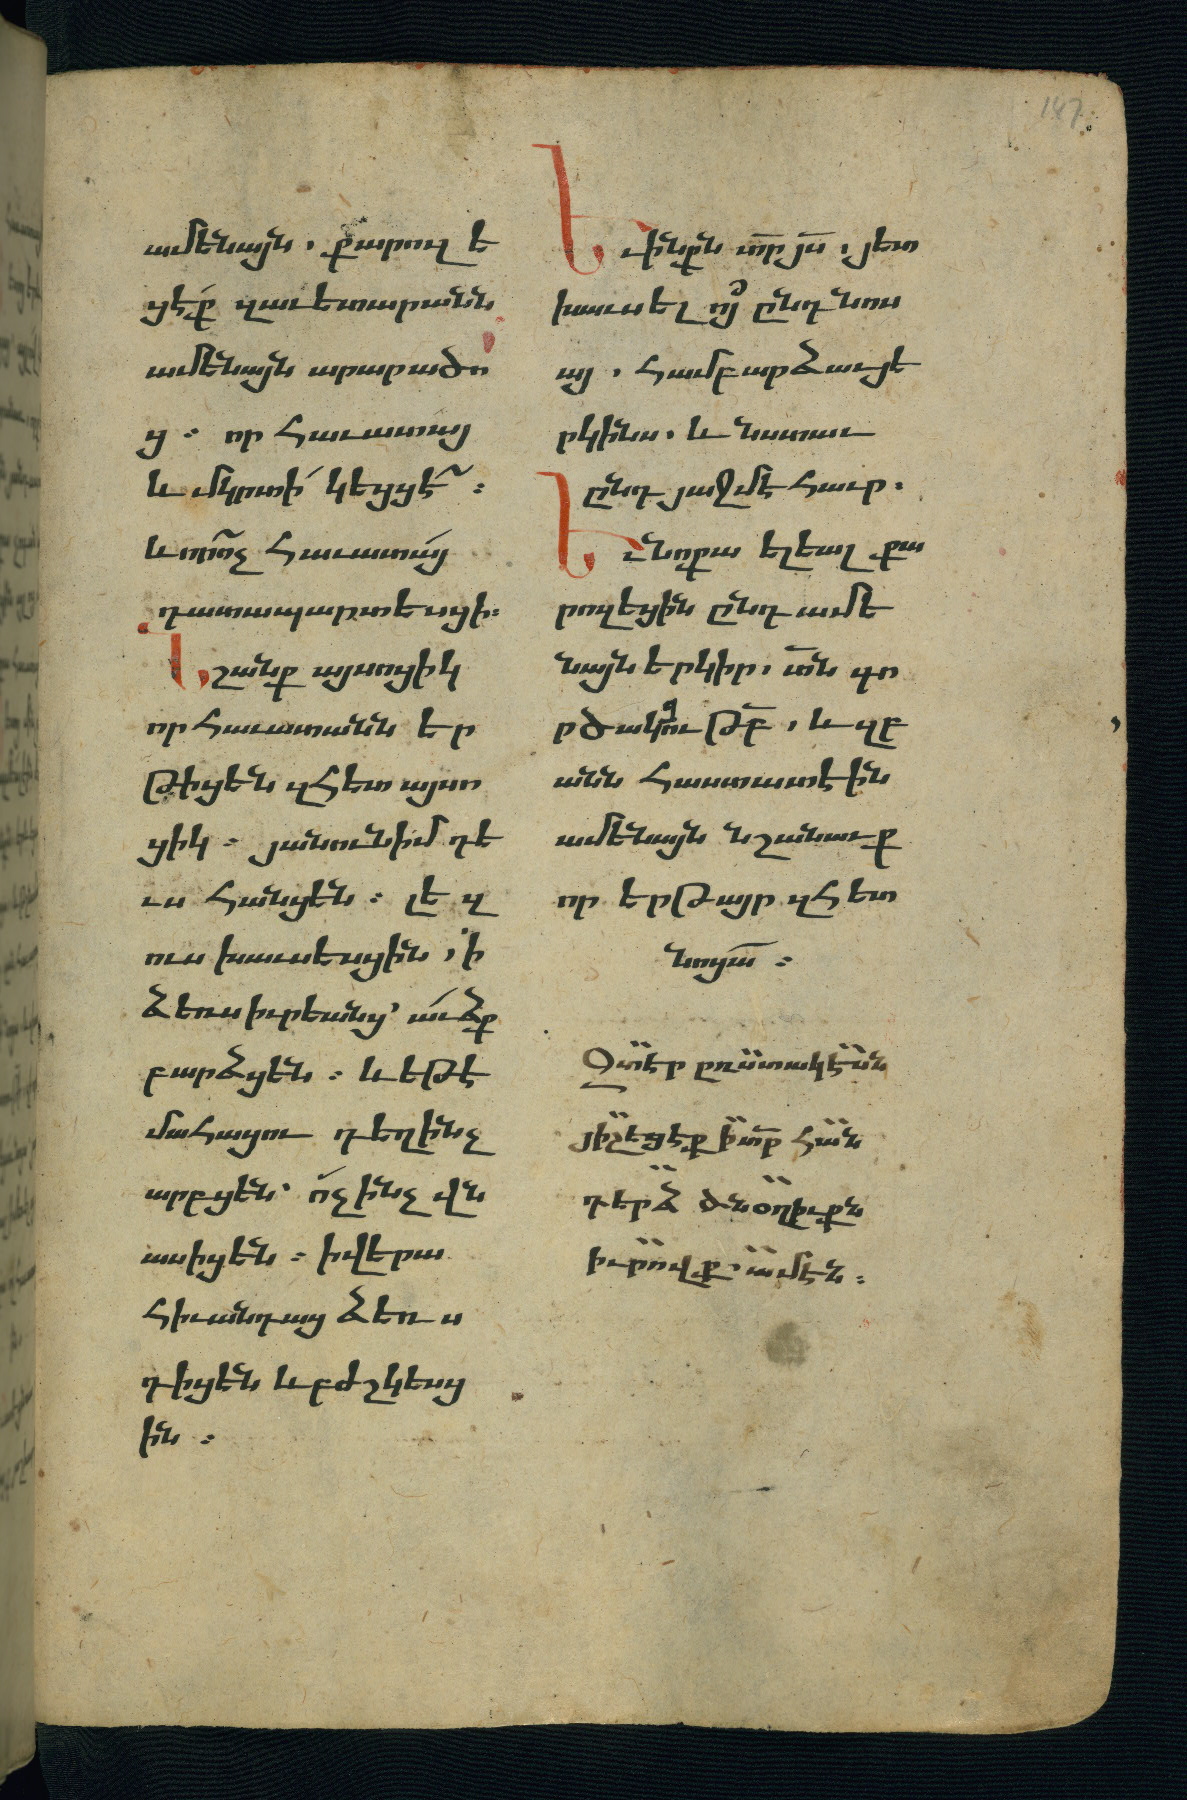 147
ամենայն. քարոզ ե
ցէք զաւետարանն
ամենայն արարածո
ց : որ հաւատայ
և մկրտի՛ կեցցէ՛ :
և որ ոչ հաւատայ
դատապարտեսցի :
Նշանք այսոցիկ
որ հաւատանն եր
թիցեն զհետ այսո
ցիկ : յանուն իմ դե
ւս հանցեն : լեզ
ուս խաւսեսցին, ի
ձեռս իւրեանց՝ աւձք
բարձցեն : և եթէ
մահացու դեղինչ
արբցեն՝ ոչինչ վն
ասիցեն : ի վերա
հիւանդաց ձեռս
դիցեն և բժշկեսց
ին :
Եւ ինքն տր յս, յետ
խաւսել ոյ ընդ նոս
ա, համբարձաւ յե
րկինս, և նստաւ
ընդ յաջմէ հաւր.
Եւ նոքա ելեալ քա
րոզեցին ընդ ամե
նայն երկիր, տն գո
րծակցութբ, և զբ
անն հաստատէին
ամենայն նշանաւք
որ երթայր զհետ
նոցա :
Զտէր ըռստակէսն
յիշեցէք ի տր հան
դերձ ծնօղիւքն
իւրովք. ամէն :